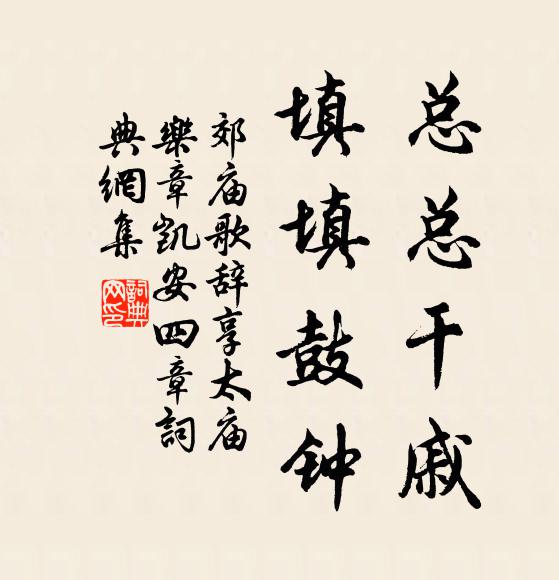 总总干戚
填填鼓钟
郊庙歌辞享太庙
樂章凯安四章詞
典網集
詞典网印